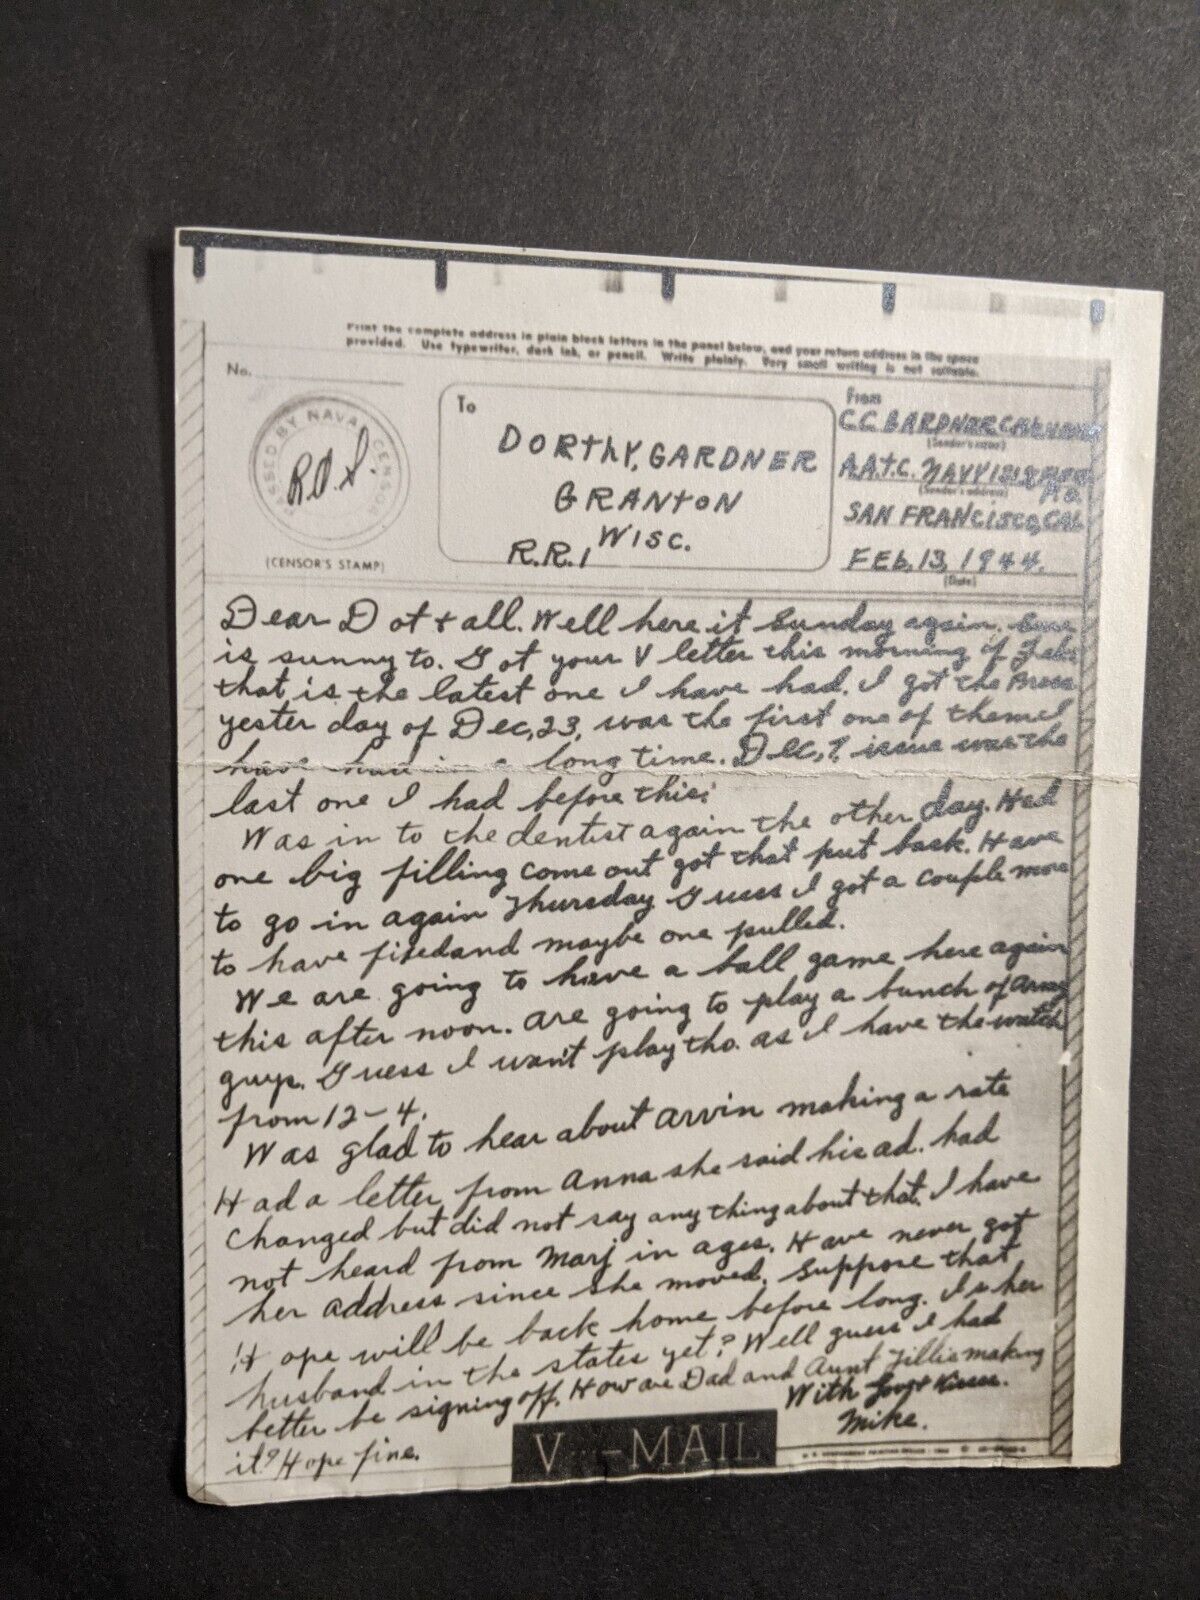 Print the complete address in plain block letters in the panel below, and your return address in the space
provided. Use typewriter, dark ink, or pencil. Write plainly. Very small writing is not suitable.
No.
PASSED BY NAVAL CENSOR
(CENSOR'S STAMP)
To
DORTHY, GARDNER
GRANTON
WISC.
R.R.1
From
C.C. GARDNER
(Sender's name)
A.A.T.C. NAVY
(Sender's address)
SAN FRANCISCO, CAL
FEB, 13, 1944.
(Date)
Dear Dot + all. Well here it Sunday again. Sure
is sunny to. Got your V letter this morning of Feb
that is the latest one I have had. I got the Press
yester day of Dec, 23, was the first one of them I
have had in a long time. Dec, 9 issue was the
last one I had before this.
Was in to the dentist again the other day. Had
one big filling come out got that put back. Have
to go in again Thursday Guess I got a couple more
to have fixed and maybe one pulled.
We are going to have a ball game here again
this after noon. are going to play a bunch of army
guys. Guess I wan't play tho. as I have the watch
from 12-4.
Was glad to hear about Arvin making a rate
Had a letter from Anna she said his ad. had
changed but did not say any thing about that. I have
not heard from Marj in ages. Have never got
her address since she moved. Suppose that
Hope will be back home before long. Is her
husband in the states yet? Well guess I had
better be signing off. How are Dad and Aunt Tillie making
it? Hope fine.
With Love + Kisses.
Mike.
V···-MAIL